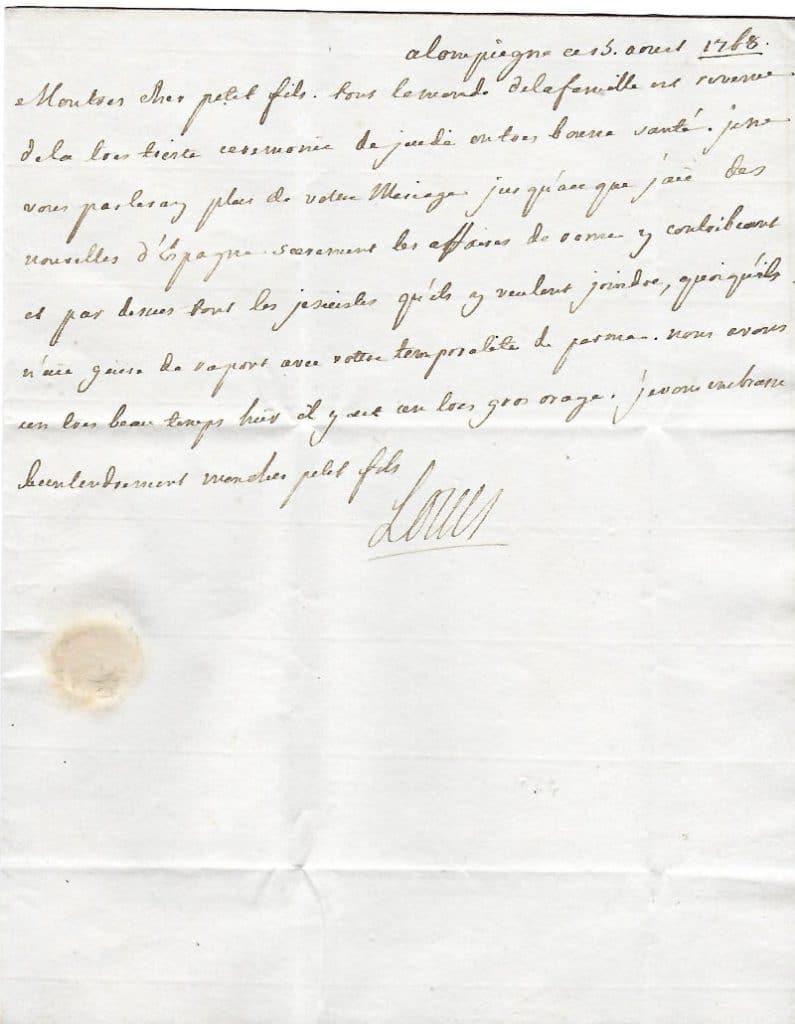 a Compiegne ce 15. aout 1768.
Mon tres cher petit fils. tout le monde de la famille est revenu
de la tres triste ceremonie de jeudi en tres bonne santé. je ne
vous parleray plus de votre Mariage jusqu'a ce que j'aie des
nouvelles d'Espagne. surement les affaires de rome y contribuent
et par dessus tout les jesuistes qu'ils y veulent joindre, quoiqu'ils
n'aie guere de raport avec votre temporalité de parme. nous avons
un tres beau temps hier il y eut un tres gros orage. je vous embrasse
bien tendrement mon cher petit fils
Louis